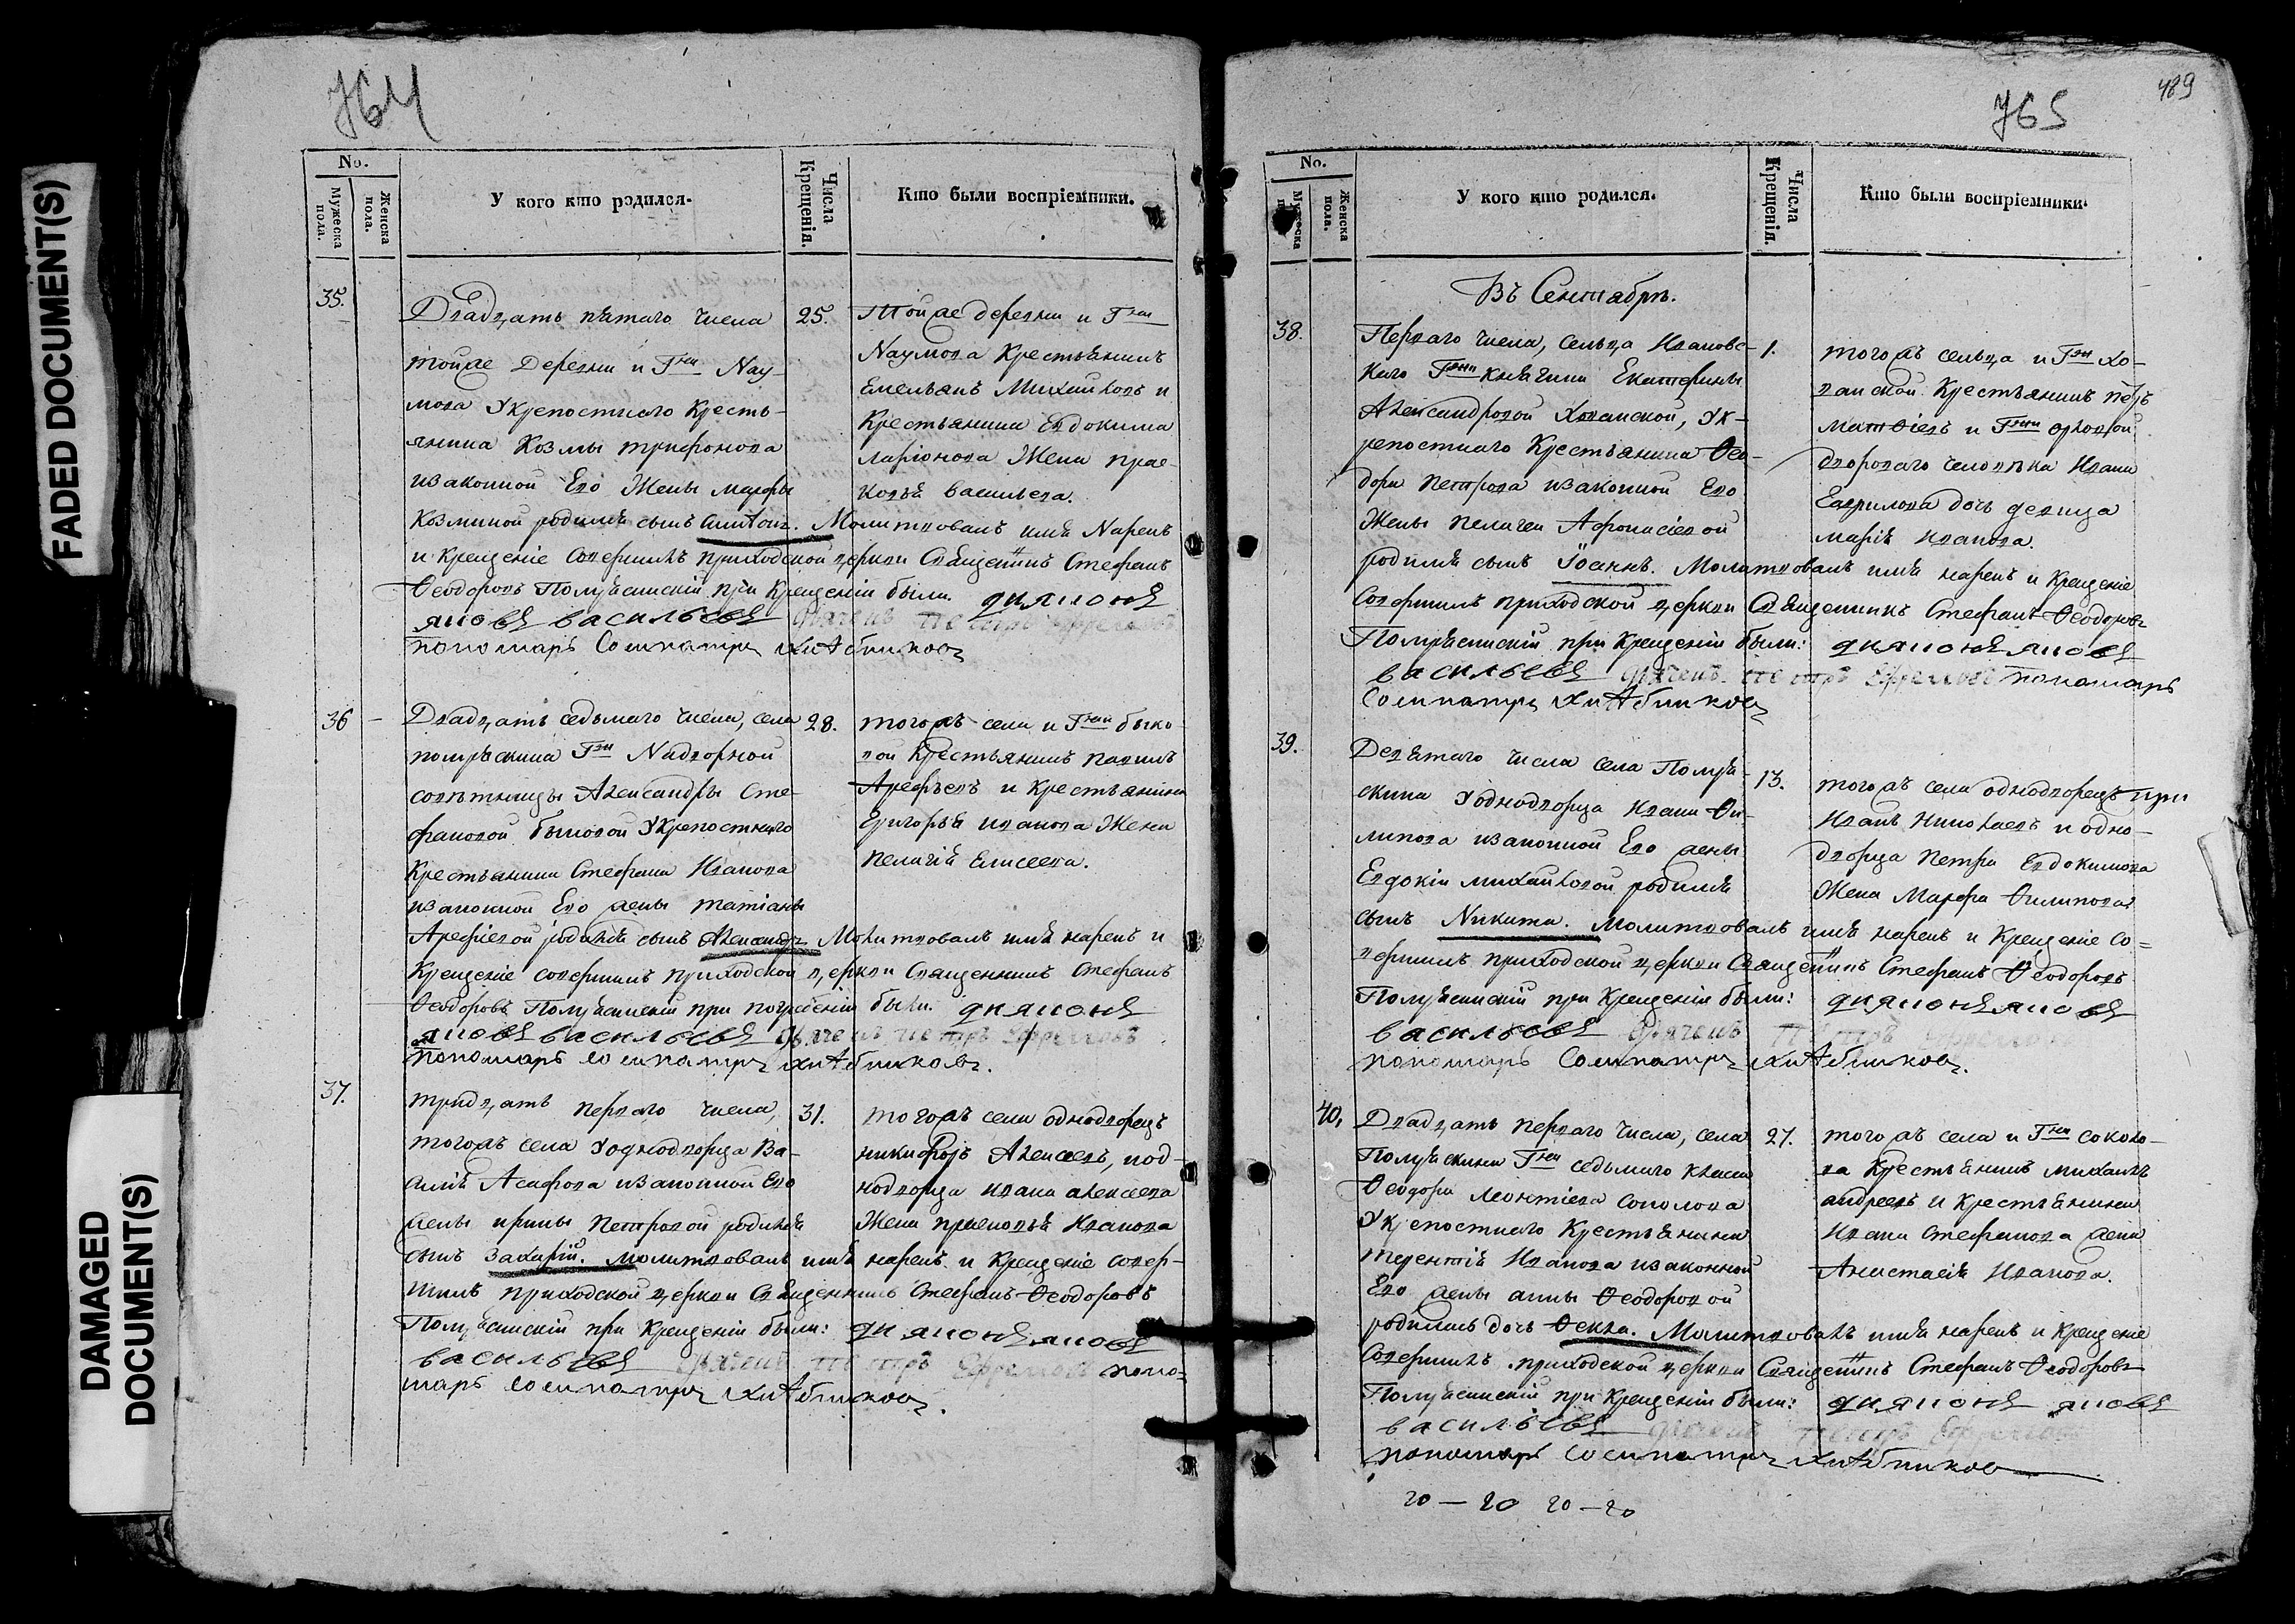 FADED DOCUMENT(S)
DAMAGED
DOCUMENT(S)
764
No.
Мужеска пола.
Женска пола.
У кого кто родился.
Числа Крещенія.
Кто были воспріемники.
35.
Двадцать пятаго числа
тойже Деревни и Г-жи Nау-
мова Укрепостнаго Кресть-
янина Козмы Трифонова
изаконной Его Жены Марфы
Козминой родился сынъ Антонъ. Молитвовалъ имя Nарекъ
и Крещеніе Совершилъ приходской церкви Священникъ Стефанъ
Ѳеодоровъ Полуяминскій при Крещеніи были. дияконъ
яковъ васильевъ дячекъ петръ Ефремовъ
пономарь Сосипатръ Хлѣбниковъ
25.
Тойже деревни и Г-на
Nаумова Крестьянинъ
Емельянъ Михайловъ и
Крестьянина Евдокима
Ларіонова Жена прас-
ковья васильева.
36
Двадцать седьмаго числа, села
Г-жи Nадворной
совѣтницы Александры Сте-
фановой Быковой Укрепостнаго
Крестьянина Стефана Иванова
изаконной Его жены татіаны
Арефіевой родился сынъ Александръ Молитвовалъ имя нарекъ и
Крещеніе совершилъ приходской церкви Священникъ Стефанъ
Ѳеодоровъ при были. дияконъ
яковъ васильевъ дячекъ петръ Ефремовъ
пономарь сосипатръ Хлѣбниковъ.
28.
тогожъ села и Г-жи Быко-
вой Крестьянинъ
Арефьевъ и Крестьянина
Григорья иванова Жена
пелагія Елисеева.
37.
тридцать перваго числа,
тогожъ села Уоднодворца Ва-
силія Асафова изаконной Его
жены ирины Петровой родился
сынъ Захарій. молитвовалъ имя нарекъ и Крещеніе совер-
шилъ приходской церкви Священникъ Стефанъ Ѳеодоровъ
при Крещеніи были: дияконъ яковъ
васильевъ дячекъ петръ Ефремовъ поно-
марь сосипатръ Хлѣбниковъ.
31.
тогожъ села однодворецъ
никифоръ Алексеевъ, иод-
нодворца ивана алексеева
Жена прасковья Иванова
765
489
No.
Мужеска пола.
Женска пола.
У кого кто родился.
Числа Крещенія.
Кто были воспріемники.
Въ Сентябрѣ.
38.
Перваго числа, сельца Ивановс-
каго Г-жи княгини Екатерины
Александровой Хованской, Ук-
репостнаго Крестьянина Ѳео-
дора Петрова изаконной Его
Жены пелагеи Афонасіевой
родился сынъ Іоаннъ. Молитвовалъ имя нарекъ и Крещеніе
Совершилъ приходской церкви Священникъ Стефанъ Ѳеодоровъ
при Крещеніи были: дияконъ яковъ
васильевъ дячекъ петръ Ефремовъ пономарь
Сосипатръ Хлѣбниковъ
1.
тогожъ сельца и Г-жи Хо-
ванской Крестьянинъ петръ
матѳіевъ и Г-жи
двороваго человѣка Ивана
Гаврилова дочь девица
марія иванова.
39.
Девятаго числа села
Уоднодворца Ивана Фи-
липова изаконной Его жены
Евдокіи михайловой родился
сынъ Nикита. Молитвовалъ имя нарекъ и Крещеніе Со=
вершилъ приходской церкви Священникъ Стефанъ Ѳеодоровъ
при Крещеніи были: дияконъ яковъ
васильевъ дячекъ петръ Ефремовъ
пономарь Сосипатръ Хлѣбниковъ.
13.
тогожъ села однодворецъ
Иванъ Николаевъ и одно-
дворца петра Евдокимова
Жена Марфа Филипова
40.
Двадцать перваго числа, села
Г-на седьмаго класса
Ѳеодора Леонтіева Соколова
Укрепостнаго Крестьянина
терентія Иванова изаконной
Его жены анны Ѳеодоровой
родилась дочь Ѳекла. Молитвовалъ имя нарекъ и Крещеніе
Совершилъ приходской церкви Священникъ Стефанъ Ѳеодоровъ
при Крещеніи были: дияконъ яковъ
васильевъ дячекъ петръ Ефремовъ
пономарь Сосипатръ Хлѣбниковъ
27.
тогожъ села и Г-на Соколо-
ва Крестьянинъ михаилъ
андреевъ и Крестьянина
Ивана Стефанова жена
Анастасія Иванова.
20 — 20 20 — 20